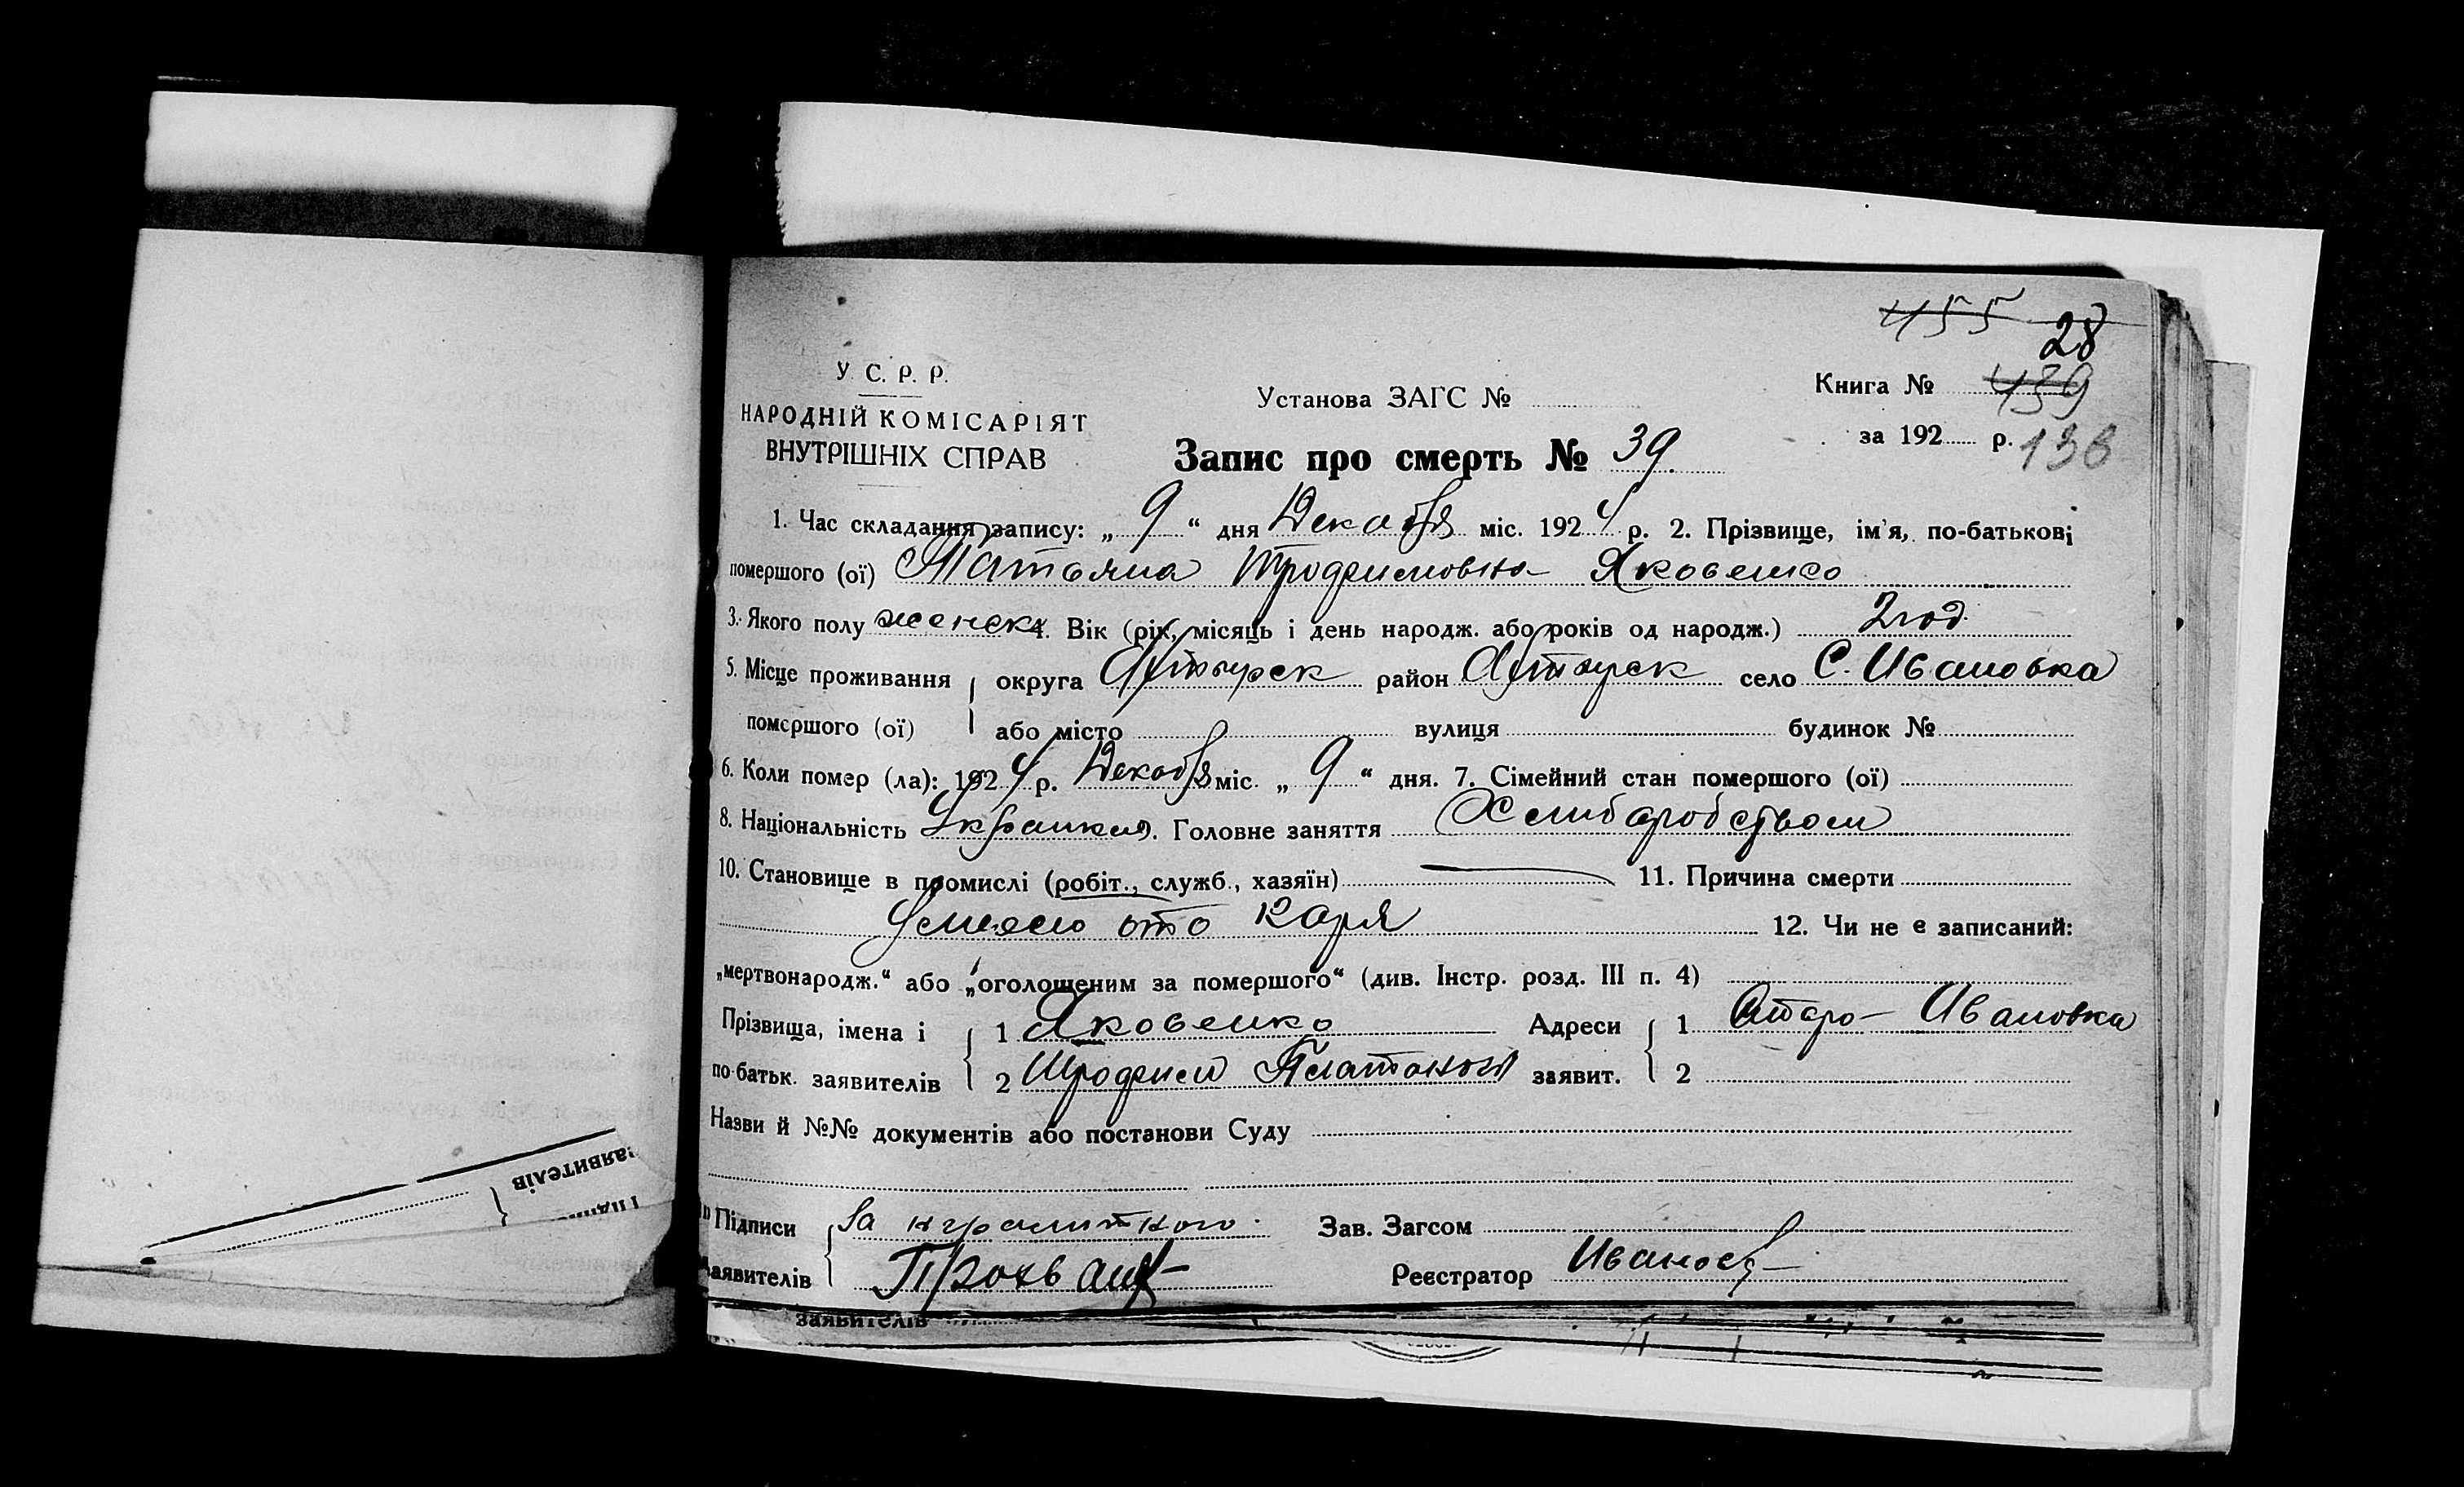 455
28
У. С. Р. Р.
НАРОДНІЙ КОМІСАРІЯТ
ВНУТРІШНІХ СПРАВ
Установа ЗАГС №
Книга № 439
за 192 р. 136
Запис про смерть № 39
1. Час складання запису: „ 9 “ дня Декабря міс. 1924 р. 2. Прізвище, ім'я, по-батькові
помершого (ої) Татьяна Трофимовна Яковенко
3. Якого полу женск 4. Вік (рік, місяць і день народж. або років од народж.) 2 год.
5. Місце проживання округа район село С. Ивановка
помершого (ої) або місто вулиця будинок №
6. Коли помер (ла): 1924 р. Декабря міс. „ 9 “ дня. 7. Сімейний стан помершого (ої)
8. Національність 9. Головне заняття
10. Становище в промислі (робіт., служб., хазяїн) — 11. Причина смерти
12. Чи не є записаний:
„мертвонародж.“ або „оголошеним за помершого“ (див. Інстр. розд. III п. 4)
Прізвища, імена і 1 Яковенко Адреси 1 Старо-Ивановка
по-батьк. заявителів 2 Трофим заявит. 2
Назви й №№ документів або постанови Суду
Підписи За Зав. Загсом
заявителів Реєстратор
заявителів
заявителів